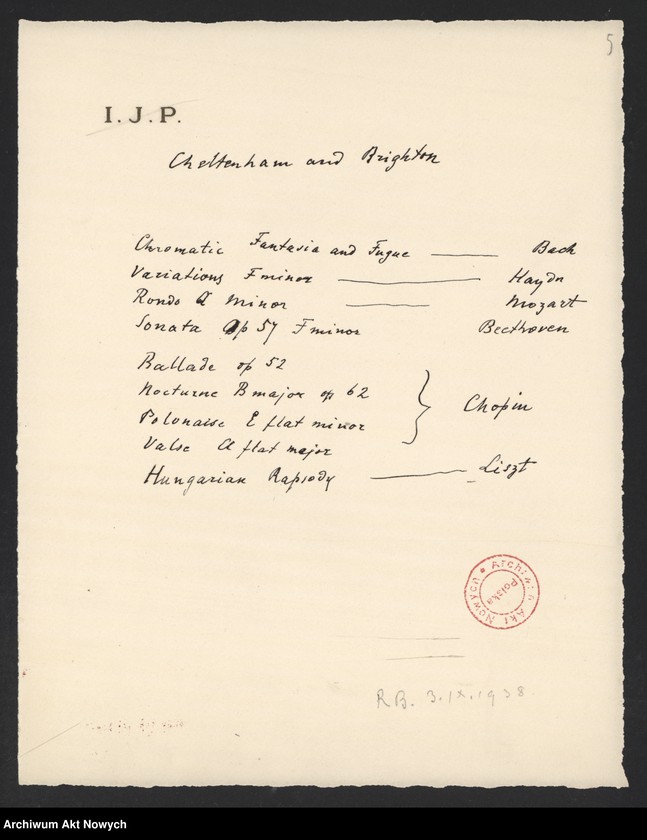 5
I. J. P.
Cheltenham and Brighton
Chromatic Fantasia and Fugue —— Bach
Variations F minor —— Haydn
Rondo A minor —— Mozart
Sonata Op 57 F minor Beethoven
Ballade op 52
Nocturne B major op 62
Polonaise E flat minor } Chopin
Valse A flat major
Hungarian Rapsody —— Liszt
Archiwum Akt Nowych
Polska
RB. 3.IX.1938.
Archiwum Akt Nowych